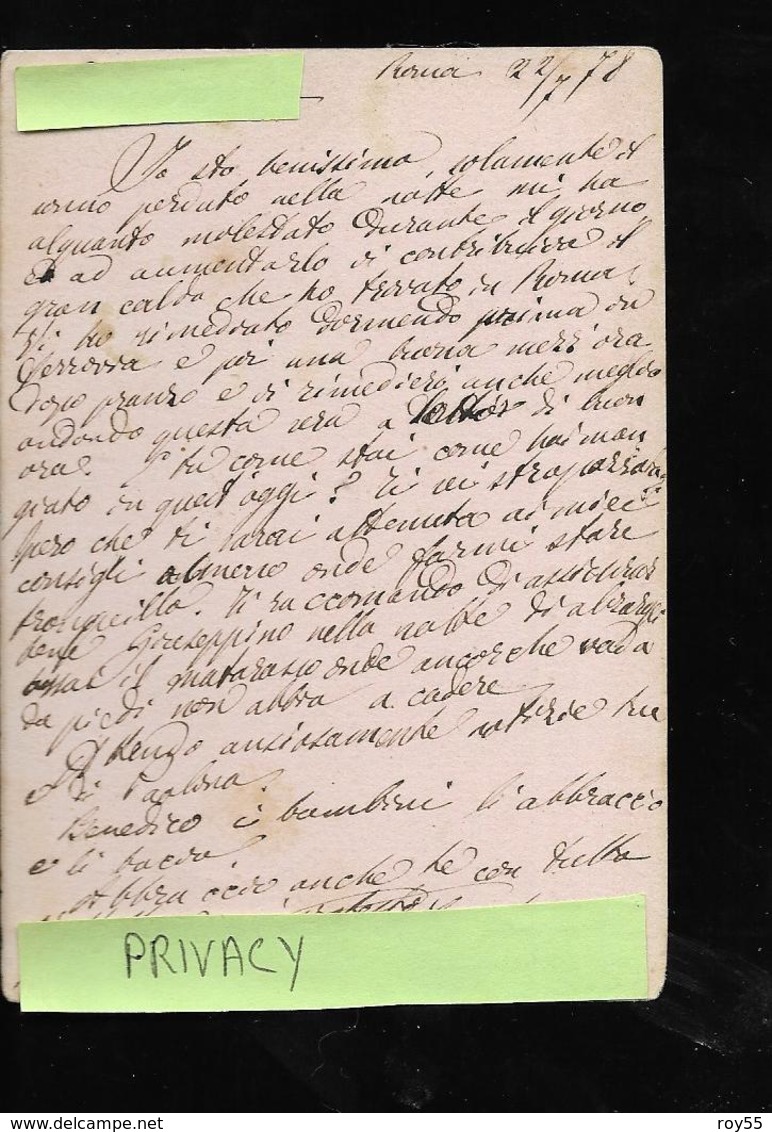 Roma 22/7 78
Io sto benissimo, solamente il
sonno perduto nella notte mi ha
alquanto molestato durante il giorno,
e ad aumentarlo vi contribuiva il
gran caldo che ho trovato in Roma;
Vi ho rimediato dormendo prima in
ferrovia e poi una buona mezz'ora
dopo pranzo e vi rimedierò anche meglio
andando questa sera a letto di buon
ora. E tu come stai come hai man
giato in quest'oggi? Ti sei strapazzata?
Spero che ti sarai attenuta ai miei
consigli almeno onde farmi stare
tranquillo. Ti raccomando di assicurar
bene Giuseppino nella notte di
il materasso onde ancorche vada
da piedi non abbia a cadere
Attendo ansiosamente notizie tue
e di Paolina.
Benedico i bambini li abbraccio
e li bacio.
Abbraccio anche te con tutta
PRIVACY
delcampe.net
roy55